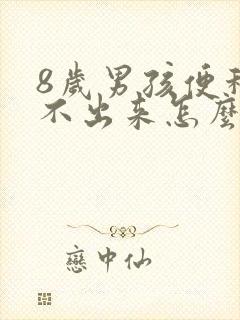 8歲男孩便秘
不出来怎麼
戀中仙